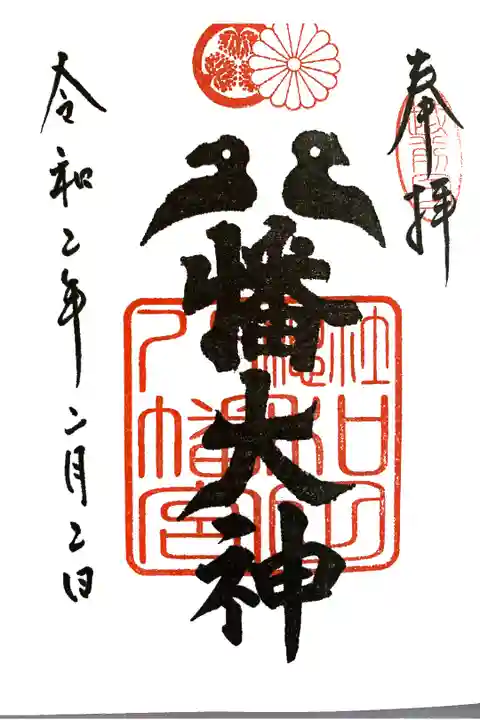 奉拝
八幡大神
令和二年二月二日